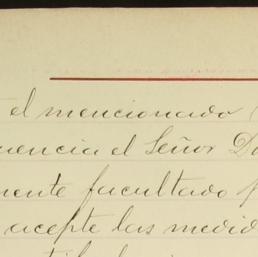 el mencionado
uencia el Señor Do
mente facultado p
acepte las medid